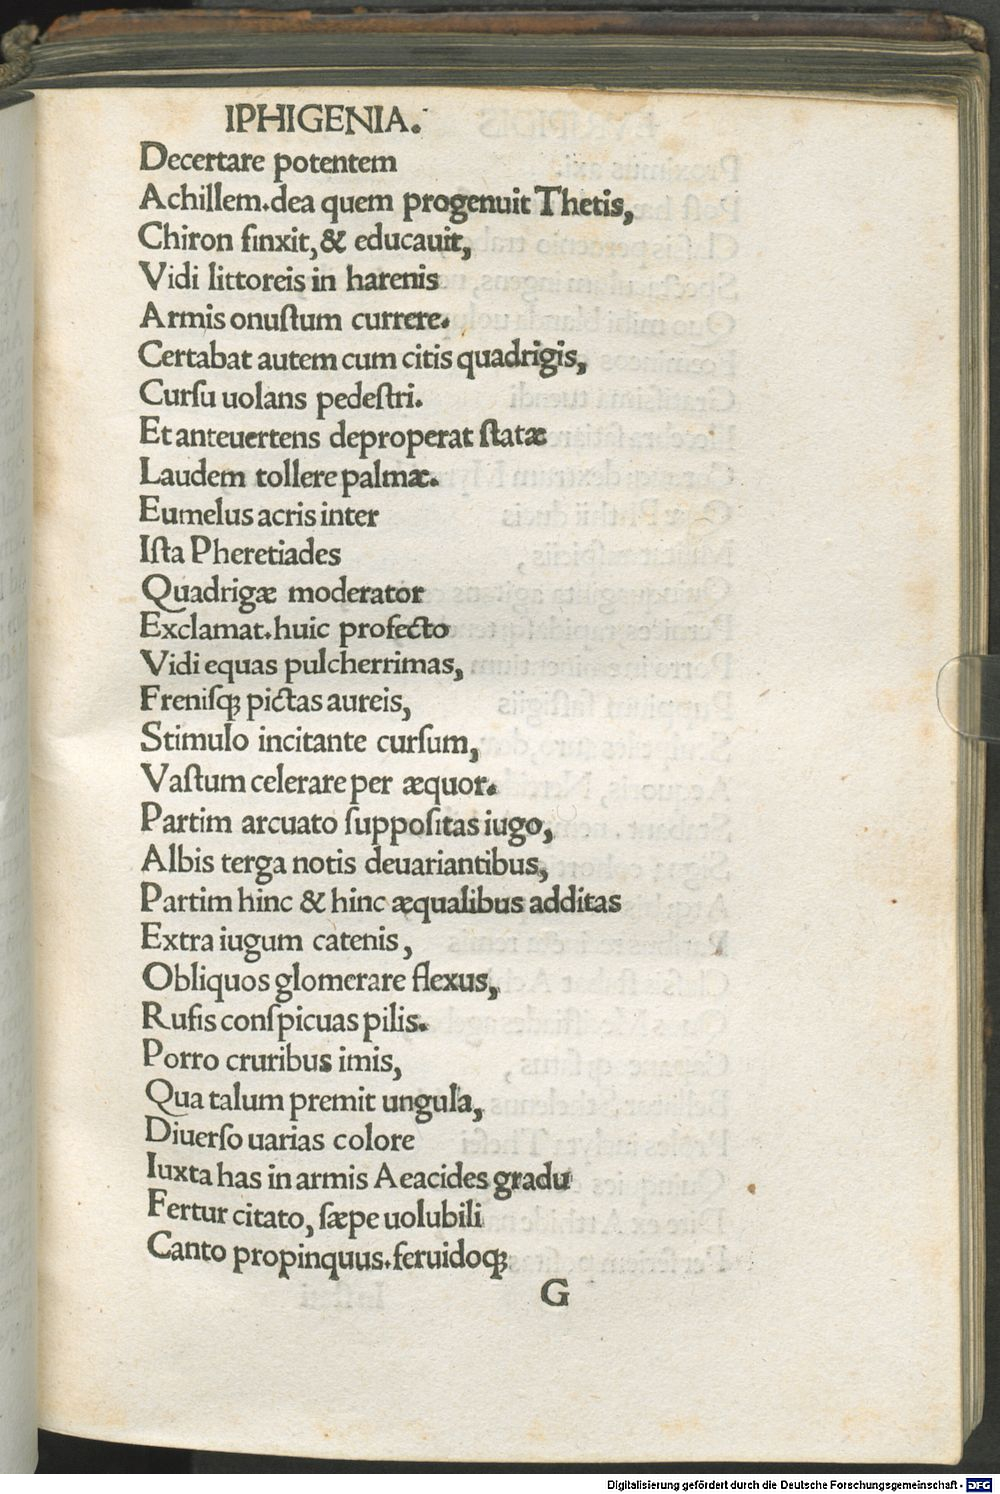 IPHIGENIA.
Decertare potentem
Achillem.dea quem progenuit Thetis,
Chiron finxit,& educauit,
Vidi littoreis in harenis
Armis onuſtum currere.
Certabat autem cum citis quadrigis,
Curſu uolans pedeſtri.
Et anteuertens deproperat ſtatæ
Laudem tollere palmæ.
Eumelus acris inter
Iſta Pheretiades
Quadrigæ moderator
Exclamat.huic profecto
Vidi equas pulcherrimas,
Freniſq; pictas aureis,
Stimulo incitante curſum,
Vaſtum celerare per æquor.
Partim arcuato ſuppoſitas iugo,
Albis terga notis deuariantibus,
Partim hinc & hinc æqualibus additas
Extra iugum catenis,
Obliquos glomerare flexus,
Rufis conſpicuas pilis.
Porro cruribus imis,
Qua talum premit ungula,
Diuerſo uarias colore
Iuxta has in armis Aeacides gradu
Fertur citato, ſæpe uolubili
Canto propinquus.feruidoq;
G
Digitalisierung gefördert durch die Deutsche Forschungsgemeinschaft - DFG